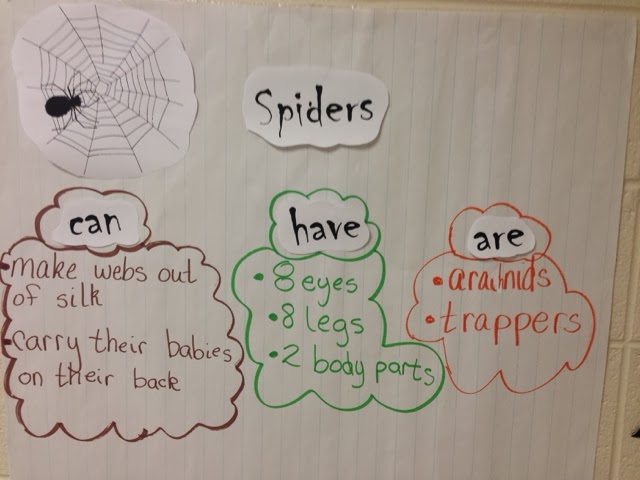 Spiders
can
• make webs out
of silk
• carry their babies
on their back
have
• 8 eyes
• 8 legs
• 2 body parts
are
• arachnids
• trappers